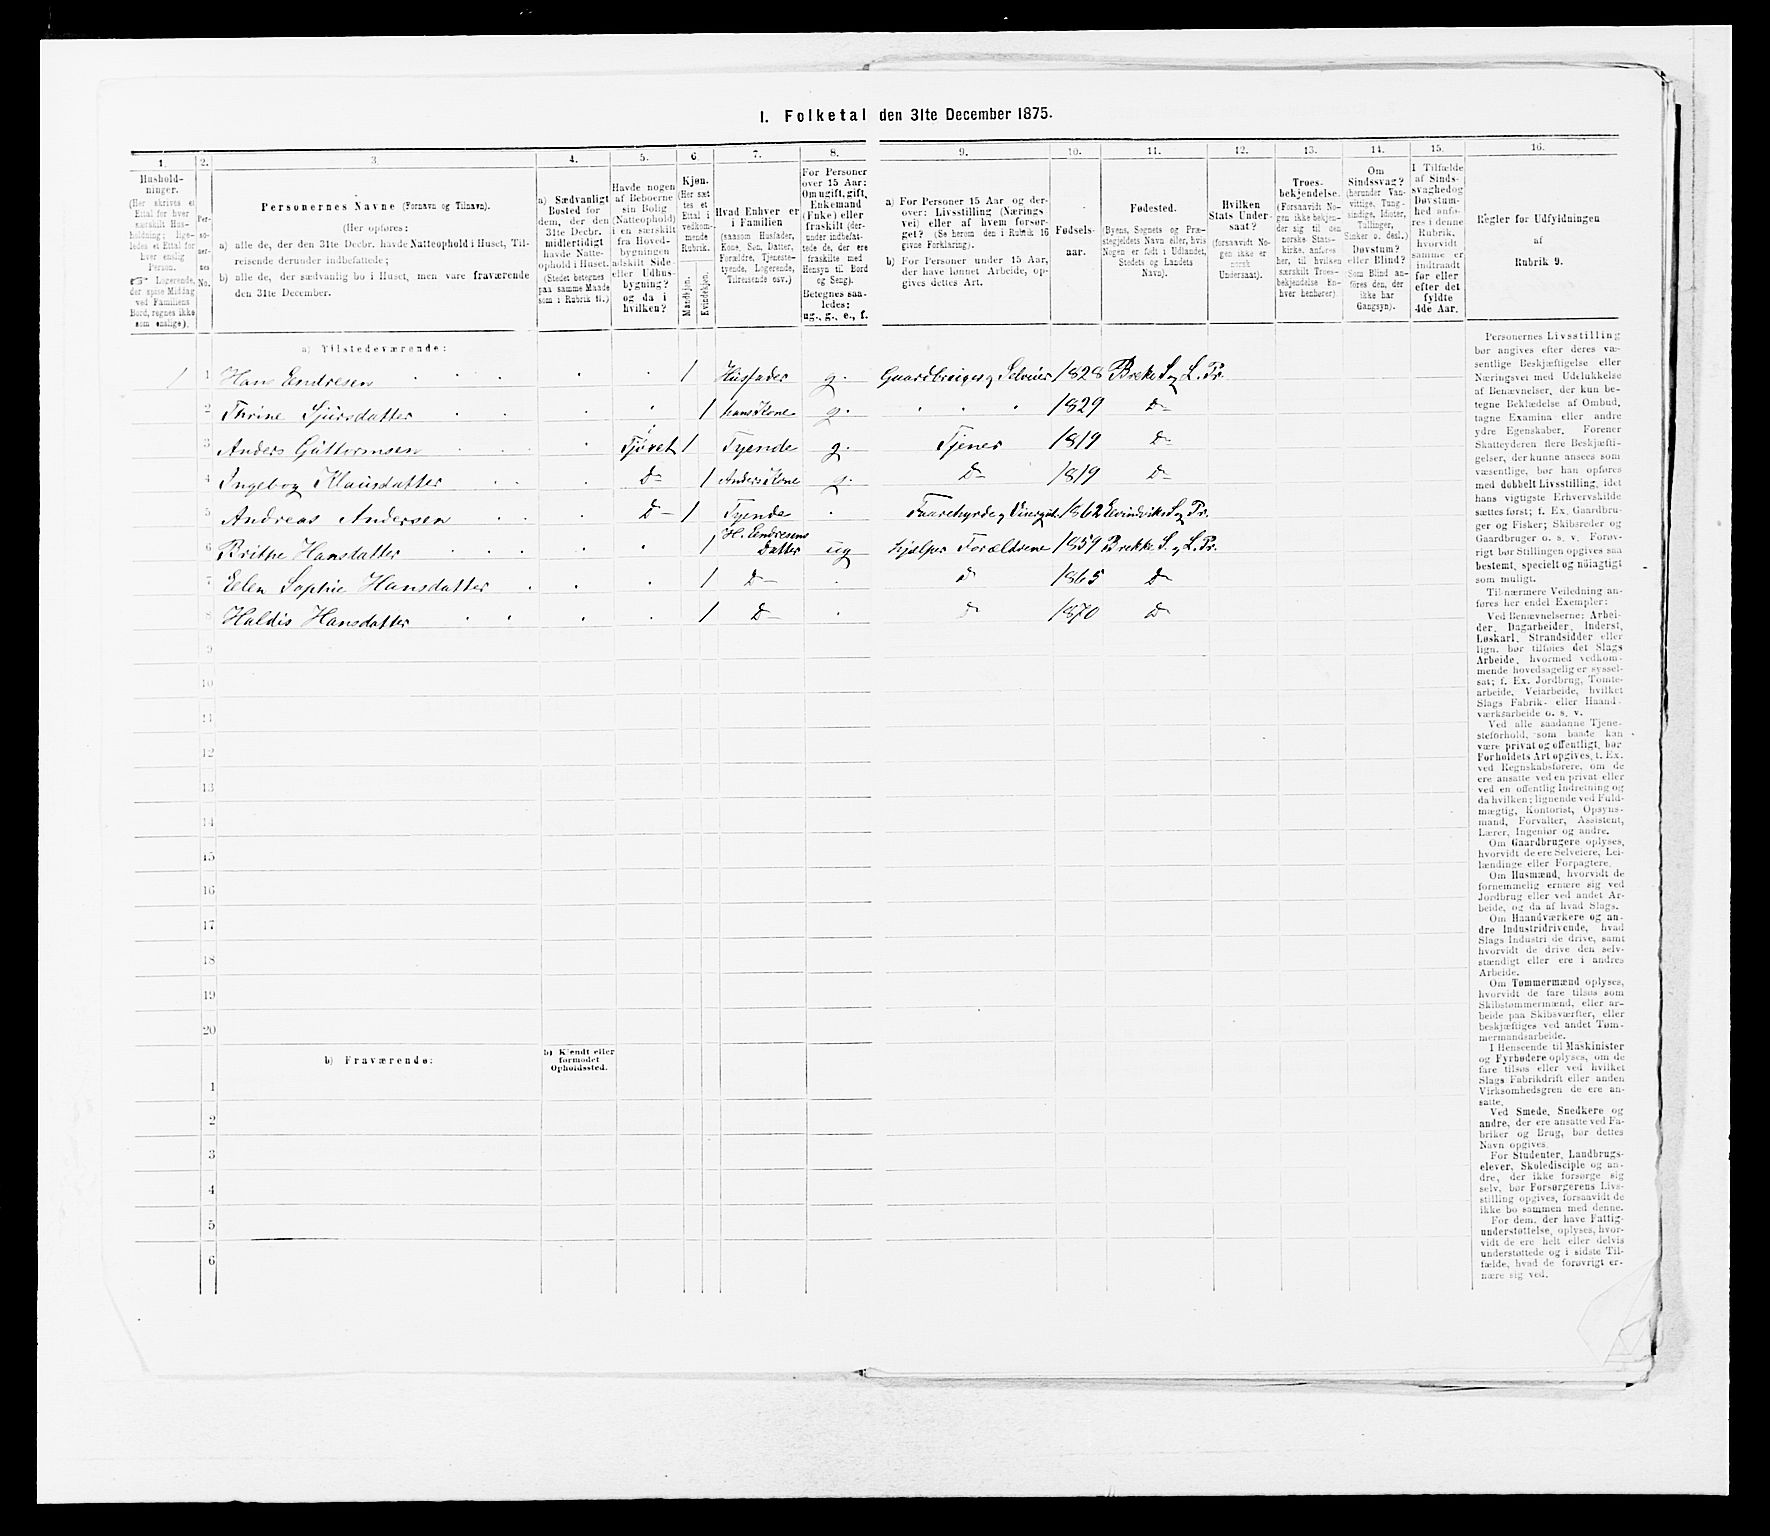 I. Folketal den 31te December 1875.
1. 2. 3. 4. 5. 6. 7. 8. 9. 10. 11. 12. 13. 14. 15. 16.
Hushold-
ninger.
(Her skrives et
Ettal for hver
særskilt Hus-
holdning; lige-
ledes et Ettal for
hver enslig
Person.
☞ Logerende,
der spise Middag
ved Familiens
Bord, regnes ikke
som enslige).
Per-
so-
ner-
nes
No.
Personernes Navne (Fornavn og Tilnavn).
(Her opføres:
a) alle de, der den 31te Decbr. havde Natteophold i Huset, Til-
reisende derunder indbefattede;
b) alle de, der sædvanlig bo i Huset, men vare fraværende
den 31te December.
a) Sædvanligt
Bosted for
dem, der den
31te Decbr.
midlertidigt
havde Natte-
ophold i Huset.
(Stedet betegnes
paa samme Maade
som i Rubrik 11.)
Havde nogen
af Beboerne
sin Bolig
(Natteophold)
i en særskilt
fra Hoved-
bygningen
adskilt Side
eller Udhus-
bygning?
og da i
hvilken?
Kjøn.
(Her sæt
tes et
Ettal i
vedkom-
mende
Rubrik.
Mandkjøn.
Kvindekjøn.
Hvad Enhver er
i Familien
(saasom Husfader,
Kone, Søn, Datter,
Forældre, Tjeneste-
tyende, Logerende,
Tilreisende osv.)
For Personer
over 15 Aar:
Om ugift, gift,
Enkemand
(Enke) eller
fraskilt (der-
under indbefat-
tede de, der ere
fraskilte med
Hensyn til Bord
og Seng).
Betegnes saa-
ledes:
ug., g., e., f.
a) For Personer 15 Aar og der-
over: Livsstilling (Nærings
vei) eller af hvem forsør-
get? (Se herom den i Rubrik 16
givne Forklaring).
b) For Personer under 15 Aar,
der have lønnet Arbeide, op-
gives dettes Art.
Fødsels-
aar.
Fødested.
(Byens, Sognets og Præ-
stegjeldets Navn eller, hvis
Nogen er født i Udlandet,
Stedets og Landets
Navn).
Hvilken
Stats Under-
saat?
(forsaavidt No-
gen ikke er
norsk
Undersaat).
Troes-
bekjendelse.
(Forsaavidt No-
gen ikke bekjen-
der sig til den
norske Stats-
kirke, anføres
her, til hvilken
særskilt Troes-
bekjendelse En-
hver henhører).
Om
Sindssvag?
(herunder Van-
vittige, Tung-
sindige, Idioter,
Tullinger,
Sinker o. desl.)
Døvstum?
eller Blind?
(Som Blind an-
føres den, der
ikke har
Gangsyn).
I Tilfælde
af Sinds-
svaghed og
Døvstum-
hed anfø-
res i denne
Rubrik,
hvorvidt
samme er
indtraadt
før eller
efter det
fyldte
4de Aar.
Regler for Udfyldningen
af
Rubrik 9.
a) Tilstedeværende:
1 1 Hans Endresen 1 Husfader g. Gaardbruger og Selveier 1828 Brekke S. og L. Pr.
2 Thrine Sjursdatter 1 hans Kone g. 1829 D-
3 Anders Guttormsen i Fjøset 1 Tyende g. Tjener 1819 D-
4 Ingebog Klausdatter D- 1 Anders Kone g. D- 1819 D-
5 Andreas Andersen D- 1 Tyende Faarehyrde og 1862 Evindviks S. og Pr.
6 Brithe Hansdatter 1 H. Endresens Datter ug hjælper Forældrene 1859 Brekke S. og L. Pr.
7 Elen Sophie Hansdatter 1 D- D- 1865 D-
8 Haldis Hansdatter 1 D- D- 1870 D-
9
10
11
12
13
14
15
16
17
18
19
20
b) Fraværende: b) Kjendt eller
formodet
Opholdssted.
1
2
3
4
5
6
Personernes Livsstilling
bør angives efter deres væ-
sentlige Beskjæftigelse eller
Næringsvei med Udelukkelse
af Benævnelser, der kun be-
tegne Beklædelse af Ombud,
tagne Examina eller andre
ydre Egenskaber. Forener
Skatteyderen flere Beskjæfti-
gelser, der kunne ansees som
væsentlige, bør han opføres
med dobbelt Livsstilling, idet
hans vigtigste Erhvervskilde
sættes først; f. Ex. Gaardbru-
ger og Fisker; Skibsreder og
Gaardbruger o. s. v. Forøv-
rigt bør Stillingen opgives saa
bestemt, specielt og nøiagtigt
som muligt.
Til nærmere Veiledning an-
føres her endel Exempler:
Ved Benævnelserne: Arbei-
der, Dagarbeider, Inderst,
Løskarl, Strandsidder eller
lign. bør tilføies det Slags
Arbeide, hvormed vedkom-
mende hovedsagelig er syssel-
sat; f. Ex. Jordbrug, Tomte-
arbeide, Veiarbeide, hvilket
Slags Fabrik- eller Haand-
værksarbeide o. s. v.
Ved alle saadanne Tjene-
steforhold, som baade kan
være privat og offentligt, bør
Forholdets Art opgives, f. Ex.
ved Regnskabsførere, om de
ere ansatte ved en privat eller
ved en offentlig Indretning og
da hvilken; lignende ved Fuld-
mægtig, Kontorist, Opsyns-
mand, Forvalter, Assistent,
Lærer, Ingeniør og andre.
Om Gaardbrugere oplyses,
hvorvidt de ere Selveiere, Lei-
lændinge eller Forpagtere.
Om Husmænd, hvorvidt de
fornemmelig ernære sig ved
Jordbrug eller ved andet Ar-
beide, og da af hvad Slags.
Om Haandværkere og an-
dre Industridrivende, hvad
Slags Industri de drive, samt
hvorvidt de drive den selv-
stændigt eller ere i andres
Arbeide.
Om Tømmermænd oplyses,
hvorvidt de fare tilsøs som
Skibstømmermænd, eller ar-
beide paa Skibsværfter, eller
beskjæftiges ved andet Tøm-
mermandsarbeide.
I Henseende til Maskinister
og Fyrbødere oplyses, om de
fare tilsøs eller ved hvilket
Slags Fabrikdrift eller anden
Virksomhedsgren de ere an-
satte.
Ved Smede, Snedkere og
andre, der ere ansatte ved Fa-
briker og Brug, bør dettes
Navn opgives.
For Studenter, Landbrugs-
elever, Skoledisciple og an-
dre, der ikke forsørge sig
selv, bør Forsørgerens Livs-
stilling opgives, forsaavidt de
ikke bo sammen med denne.
For dem, der have Fattig-
understøttelse, oplyses, hvor-
vidt de ere helt eller delvis
understøttede og i sidste Til-
fælde, hvad de forøvrigt er-
nære sig ved.